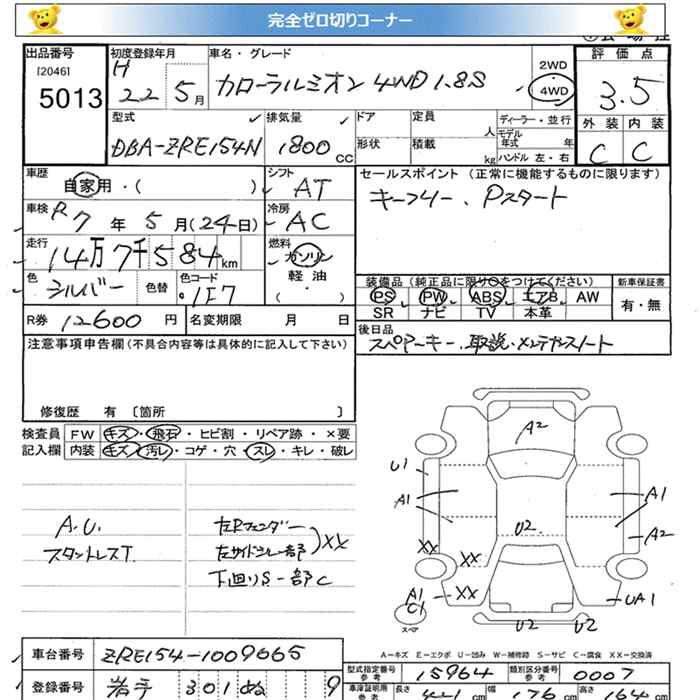 完全ゼロ切りコーナー
出品番号 初度登録年月 車名・グレード 2WD 評価点
[2046] H 22 5月 カローラルミオン 4WD 1.8S 4WD 3.5
5013
型式 排気量 ドア 定員 人 ディーラー・並行 外装 内装
DBA-ZRE154N 1800 CC 形状 積載 kg モデル年式 年 C C
ハンドル 左・右
車歴 自家用・( ) シフト AT セールスポイント (正常に機能するものに限ります)
車検 R7年5月(24日) 冷房 AC キーフリー、Pスタート
走行 14万7千584km 燃料 ガソリン
軽油
・
( )
色 シルバー 色替 色コード 1E7 装備品(純正品に限り○をつけてください) 新車保証書
PS PW ABS エアB AW 有・無
SR ナビ TV 本革
R券 12600円 名変期限 月 日 後日品
スペアーキー、取説・メンテナンスノート
注意事項申告欄(不具合内容等は具体的に記入して下さい)
修復歴 有 〔箇所 〕
検査員 FW キズ・飛石・ヒビ割・リペア跡・×要
記入欄 内装 キズ・汚レ・コゲ・穴・スレ・キレ・破レ
A.U.
スタットレスT.
左Rフェンダー
左サイドシル一部 )XX
下廻りS 一部C
A2
U1
A1 A1
A2
U2
XX XX
A1 XX UA1
C1
スペア
U2 U2
A-キズ E-エクボ U-凹み W-補修跡 S-サビ C-腐食 XX-交換済
車台番号 ZRE154-1009665 型式指定番号 参考 15964 類別区分番号 参考 0007
登録番号 岩手 301 ぬ 9 車庫証明用 参考 長さ cm 幅 176 cm 高さ cm